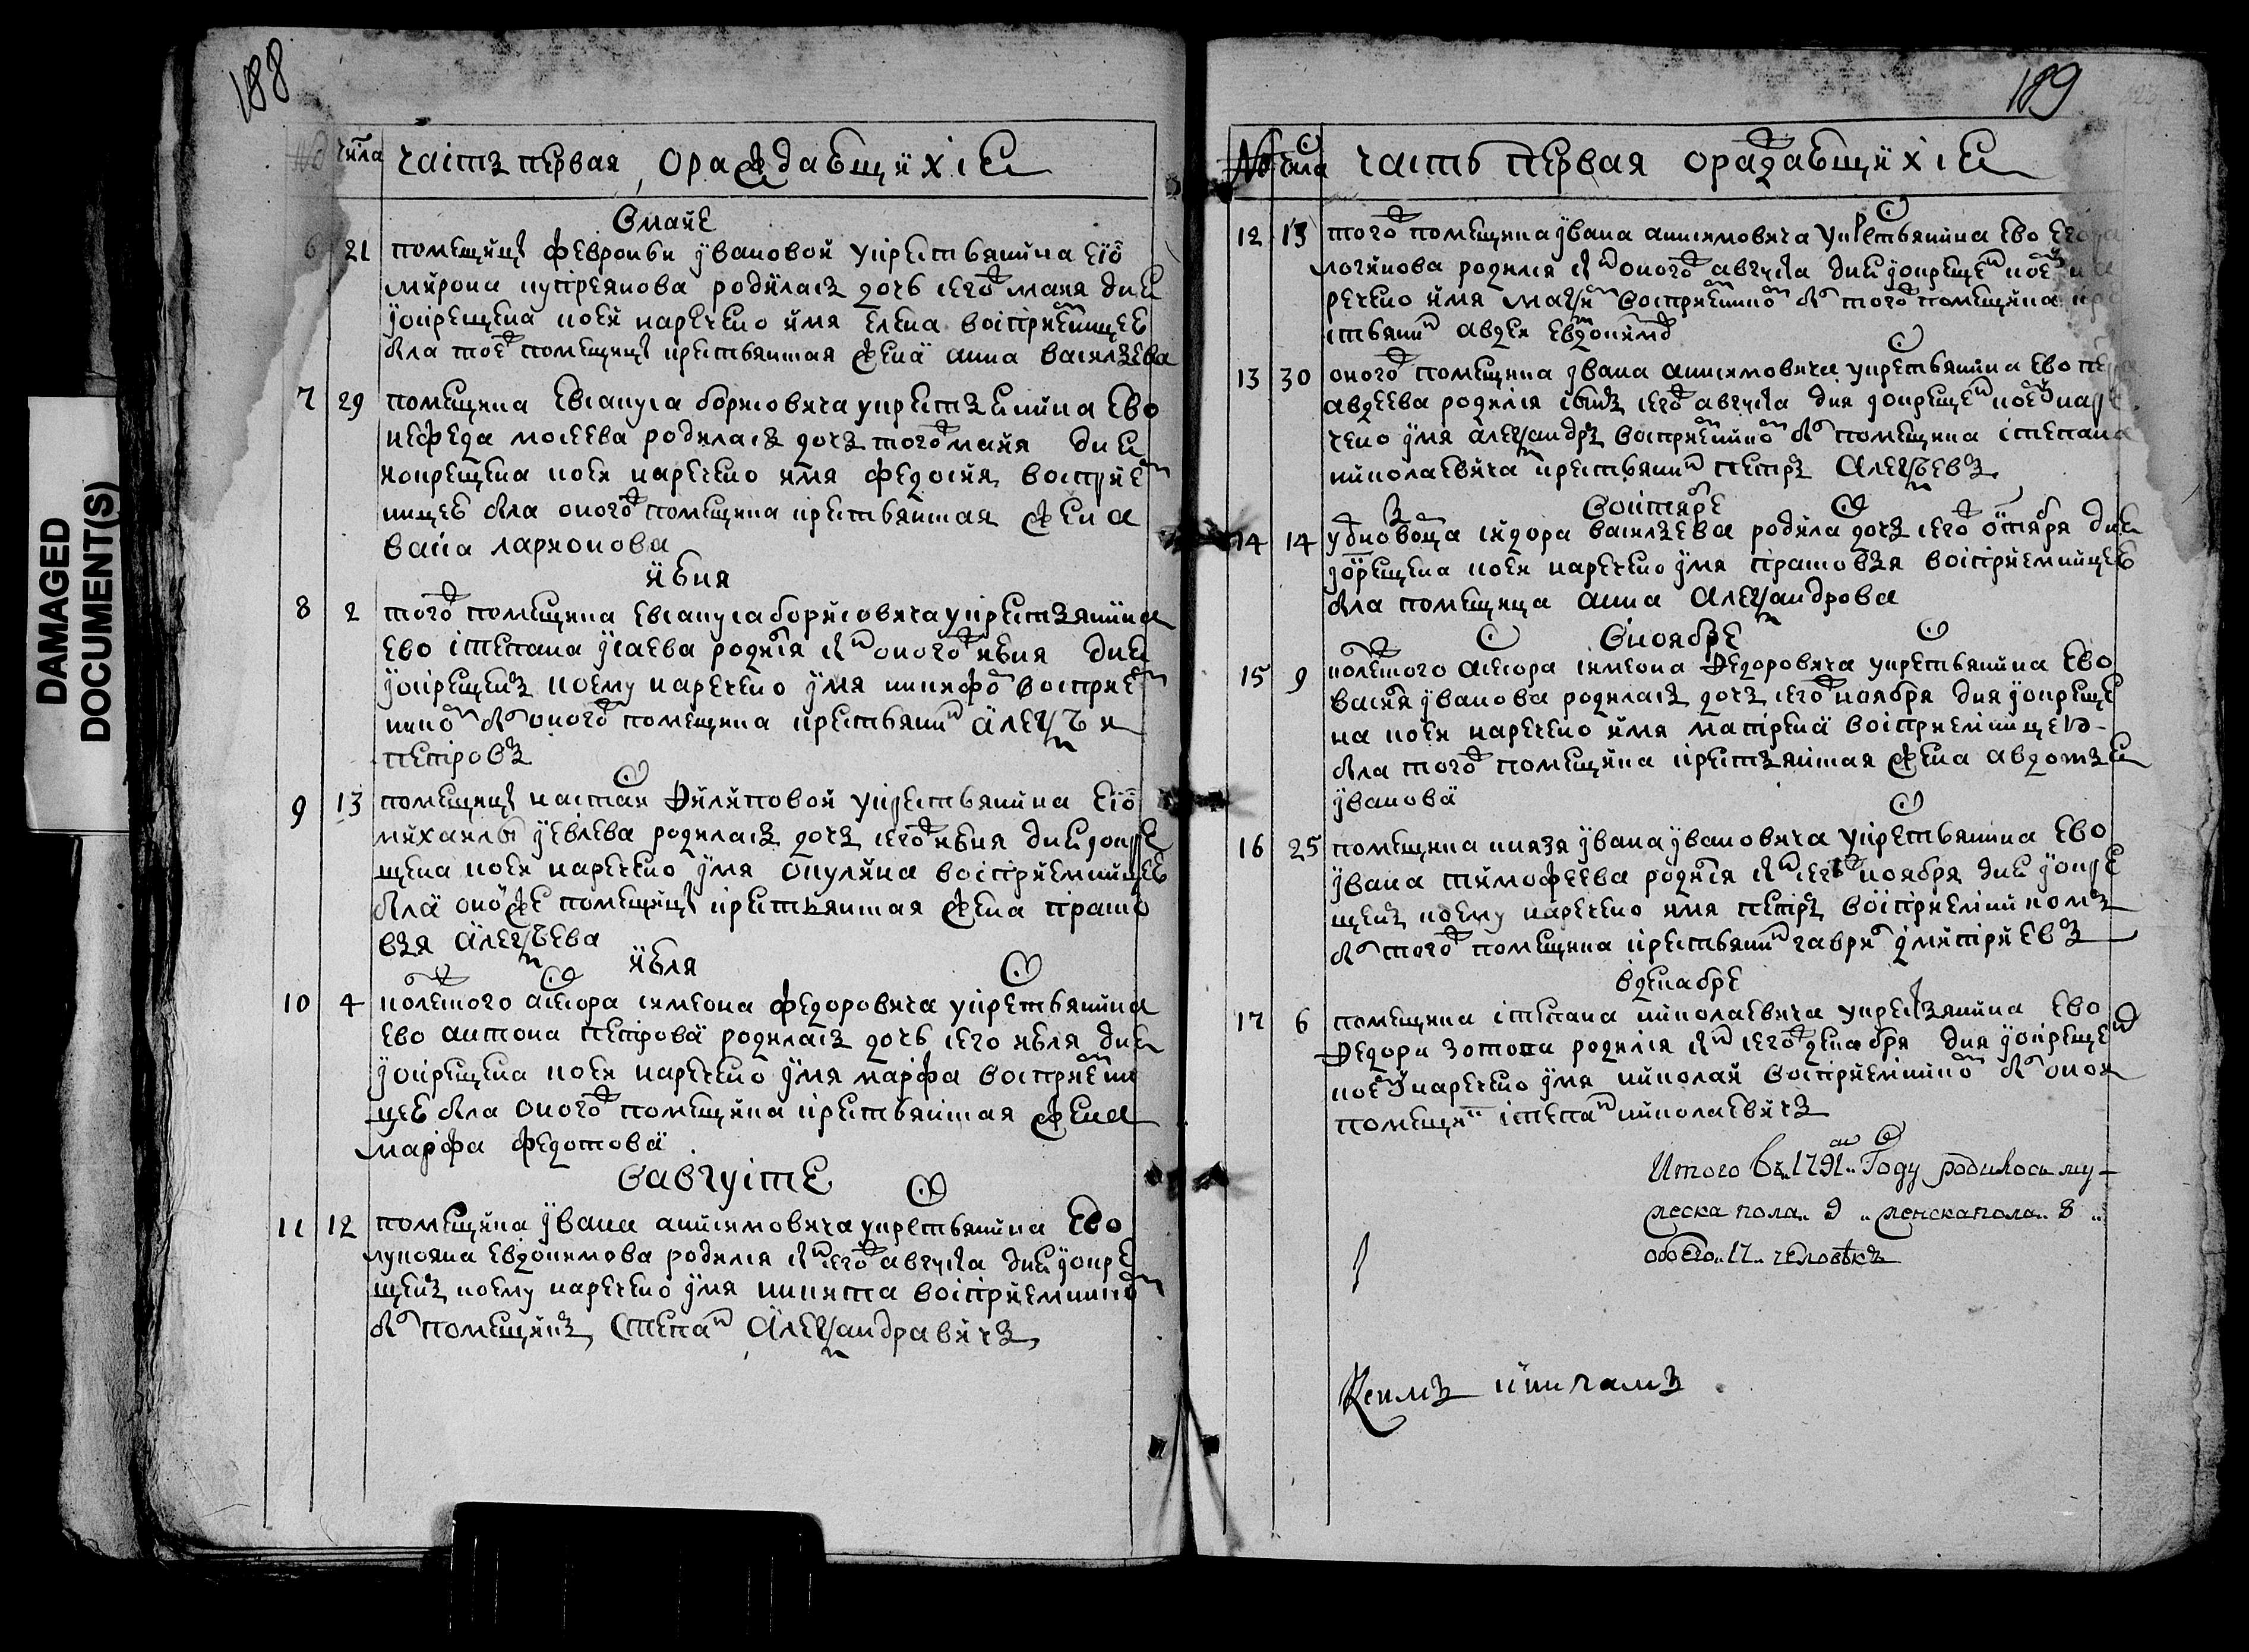 188
DAMAGED
DOCUMENT(S)
№ числа часть первая, ораждающихся
Вмаие
6 21 помещицы февроньи ивановой укрестьянина ея
мирона купреянова родилась дочь сего маия дня
икрещена коей наречено имя елена восприемницею
была тоеж помещицы крестьянская жена анна васильева
7 29 помещика евсануса борисовича укрестьянина ево
нефеда мосеева родилась дочь тогож маия дня
икрещена коей наречено имя федосия восприем
ницею была оногож помещика крестьянская жена
васа ларионова
июня
8 2 тогож помещика евсануса борисовича укрестьянина
ево степана исаева родился сын оногож июня дня
икрещенъ коему наречено имя никифор восприем
ником был оного помещика крестьянин алексъй
петровъ
9 13 помещицы настаси филиповой укрестьянина ея
михаилы иевлева родилась дочь сегож июня дня икре
щена коей наречено имя окулина восприемницею
была оной же помещицы крестьянская жена праско
вья алексъева
июля
10 4 колежского асесора симеона федоровича укрестьянина
ево антона петрова родилась дочь сего июля дня
икрещена коей наречено имя марфа восприемни
цею была оногож помещика крестьянская жена
марфа федотова
вавгусте
11 12 помещика ивана анисимовича укрестьянина ево
лукояна евдокимова родился сын сегож августа дня икре
щенъ коему наречено имя никита восприемником
был помещикъ степан александравичъ
189
№ числа часть первая ораждающихся
12 13 тогож помещика ивана анисимовича укрестьянина ево
логинова родился сын оногож августа дня икрещен коему на
речено имя максим восприемником был тогож помещика кре
стьянин авдей евдокимов
13 30 оногож помещика ивана анисимовича укрестьянина ево
авдеева родился сынъ сегож августа дня икрещен коему наре
чено имя александръ восприемником был помещика степана
николаевича крестьянин петръ алексъевъ
воктябре
14 14 сидора васильева родила дочь сегож октября дня
икрещена коей наречено имя прасковья восприемницею
была помещица анна александрова
вноябре
15 9 колежского асесора симеона федоровича укрестьянина ево
василя иванова родилась дочь сегож ноября дня икреще
на коей наречено имя матрена восприемницею
была тогож помещика крестьянская жена авдотья
иванова
16 25 помещика князя ивана ивановича укрестьянина ево
ивана тимофеева родился сын сегож ноября дня икре
щенъ коему наречено имя петръ восприемникомъ
был тогож помещика крестьянин гаврил дмитриевъ
вдекабре
17 6 помещика степана николаевича укрестьянина ево
федора зотова родился сын сегож декабря дня икрещен
коему наречено имя николай восприемником был оной
помещик степан николаевичъ
Итого въ 1791 Году родилось му-
жеска пола 9 женска пола 8
обоего 17 человѣкъ